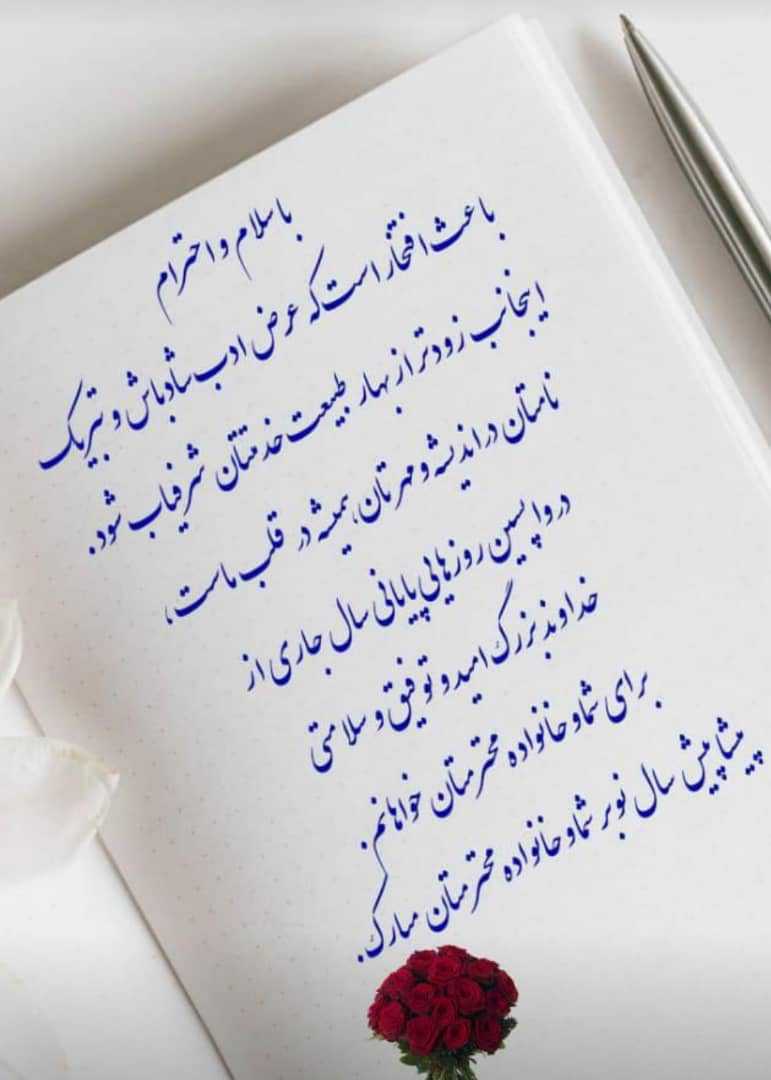 با سلام و احترام
باعث افتخار است که عرض ادب شادباش و تبریک
اینجانب زودتر از بهار طبیعت خدمتتان شرفیاب شود.
نامتان در اندیشه و مهرتان، همیشه در قلب ماست،
در واپسین روزهایی پایانی سال جاری از
خداوند بزرگ امید و توفیق و سلامتی
برای شما و خانواده محترمتان خواهانم.
پیشاپیش سال نو بر شما و خانواده محترمتان مبارک.